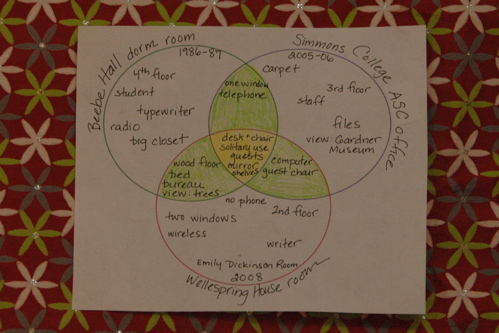 Beebe Hall dorm room
1986-89
4th floor
student
typewriter
radio
big closet
Simmons College ASC office
2005-06
carpet
3rd floor
staff
files
view: Gardner
Museum
one window
telephone
desk + chair
solitary use
quests
mirror
shelves
wood floor
bed
bureau
view: trees
computer
guest chair
no phone
two windows
2nd floor
wireless
writer
Emily Dickinson Room
2008
Wellspring House room